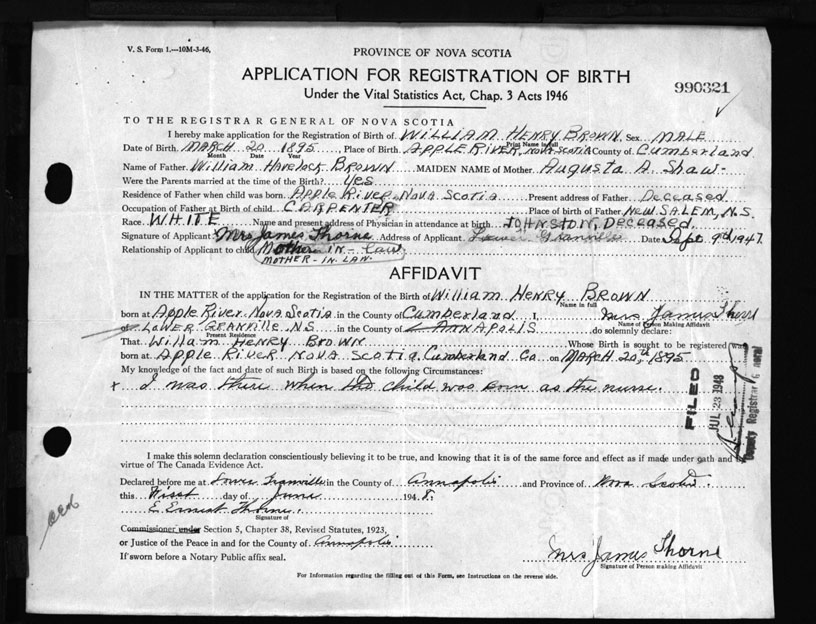 V. S. Form 1.—10M-3-46,
PROVINCE OF NOVA SCOTIA
APPLICATION FOR REGISTRATION OF BIRTH
Under the Vital Statistics Act, Chap. 3 Acts 1946
990321
TO THE REGISTRAR GENERAL OF NOVA SCOTIA
I hereby make application for the Registration of Birth of WILLIAM HENRY BROWN Sex MALE
Print Name in full
Date of Birth MARCH 20 1895 Place of Birth APPLE RIVER, NOVA SCOTIA County of Cumberland
Month Date Year
Name of Father William Havelock BROWN MAIDEN NAME of Mother Augusta A. Shaw
Were the Parents married at the time of the Birth? Yes
Residence of Father when child was born Apple River Nova Scotia Present address of Father Deceased
Occupation of Father at Birth of child CARPENTER Place of birth of Father NEW SALEM, N.S.
Race WHITE Name and present address of Physician in attendance at birth JOHNSTON, Deceased.
Signature of Applicant Mrs James Thorne Address of Applicant Lower Granville Date Sept. 9th 1947
Relationship of Applicant to child Mother-IN-law
MOTHER-IN-LAW.
AFFIDAVIT
IN THE MATTER of the application for the Registration of the Birth of William HENRY BROWN
Name in full
born at Apple River Nova Scotia in the County of Cumberland I, Mrs James Thorne
Name of Person Making Affidavit
of LOWER GRANVILLE N.S. in the County of ANNAPOLIS do solemnly declare:
Present Residence
That William HENRY BROWN Whose Birth is sought to be registered was
born at Apple River NOVA SCOTIA Cumberland Co on MARCH 20th, 1895
My knowledge of the fact and date of such Birth is based on the following Circumstances:
x I was there when the child was born as the nurse.
FILED
JUL 23 1948
County Registrar General
I make this solemn declaration conscientiously believing it to be true, and knowing that it is of the same force and effect as if made under oath and by
virtue of The Canada Evidence Act.
Declared before me at Lower Granville in the County of Annapolis and Province of Nova Scotia.
this day of June 1948.
E. Ernest Thorne.
Signature of
Commissioner under Section 5, Chapter 38, Revised Statutes, 1923,
or Justice of the Peace in and for the County of Annapolis
If sworn before a Notary Public affix seal.
Mrs James Thorne
Signature of Person making Affidavit
For Information regarding the filling out of this Form, see Instructions on the reverse side.